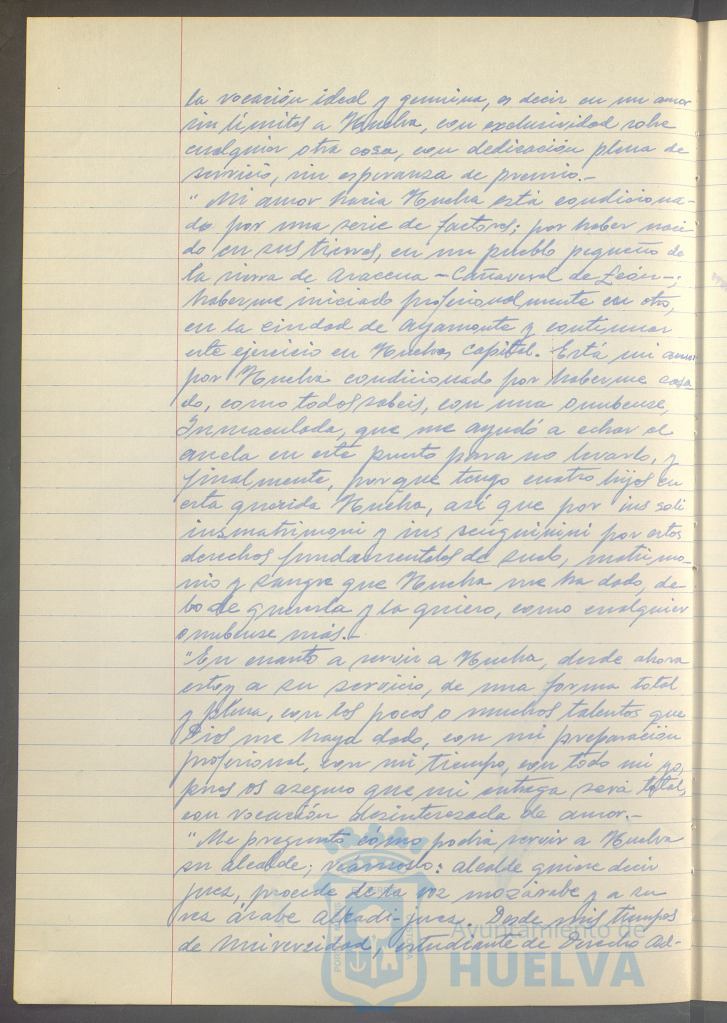 la vocación ideal y genuina, es decir en un amor
sin límites a Huelva, con exclusividad sobre
cualquier otra cosa, con dedicación plena de
servicio, sin esperanza de premio.-
"Mi amor hacia Huelva está condiciona-
do por una serie de factores; por haber naci-
do en sus tierras, en un pueblo pequeño de
la sierra de Aracena - Cañaveral de León -;
haberme iniciado profesionalmente en otro,
en la ciudad de Ayamonte y continuar
este ejercicio en Huelva capital. Está mi amor
por Huelva condicionado por haberme casa-
do, como todos sabeis, con una onubense,
Inmaculada, que me ayudó a echar el
ancla en este puerto para no levarlo, y
finalmente, porque tengo cuatro hijos en
esta querida Huelva, así que por ius soli
ius matrimoni y ius senguinini por estos
derechos fundamentales de suelo, matrimo-
nio y sangre que Huelva me ha dado, de-
bo de quererla y la quiero, como cualquier
onubense más.-
"En cuanto a servir a Huelva, desde ahora
estoy a su servicio, de una forma total
y plena, con los pocos o muchos talentos que
Dios me haya dado, con mi preparación
profesional, con mi tiempo, con todo mi yo,
pues os aseguro que mi entrega será total,
con vocación desinteresada de amor.-
"Me pregunto cómo podría servir a Huelva
su alcalde; veámoslo: alcalde quiere decir
juez, procede de la voz mozárabe y a su
vez árabe alkadi-juez. Desde mis tiempos
de Universidad, estudiante de Derecho Ad-
Ayuntamiento de
HUELVA